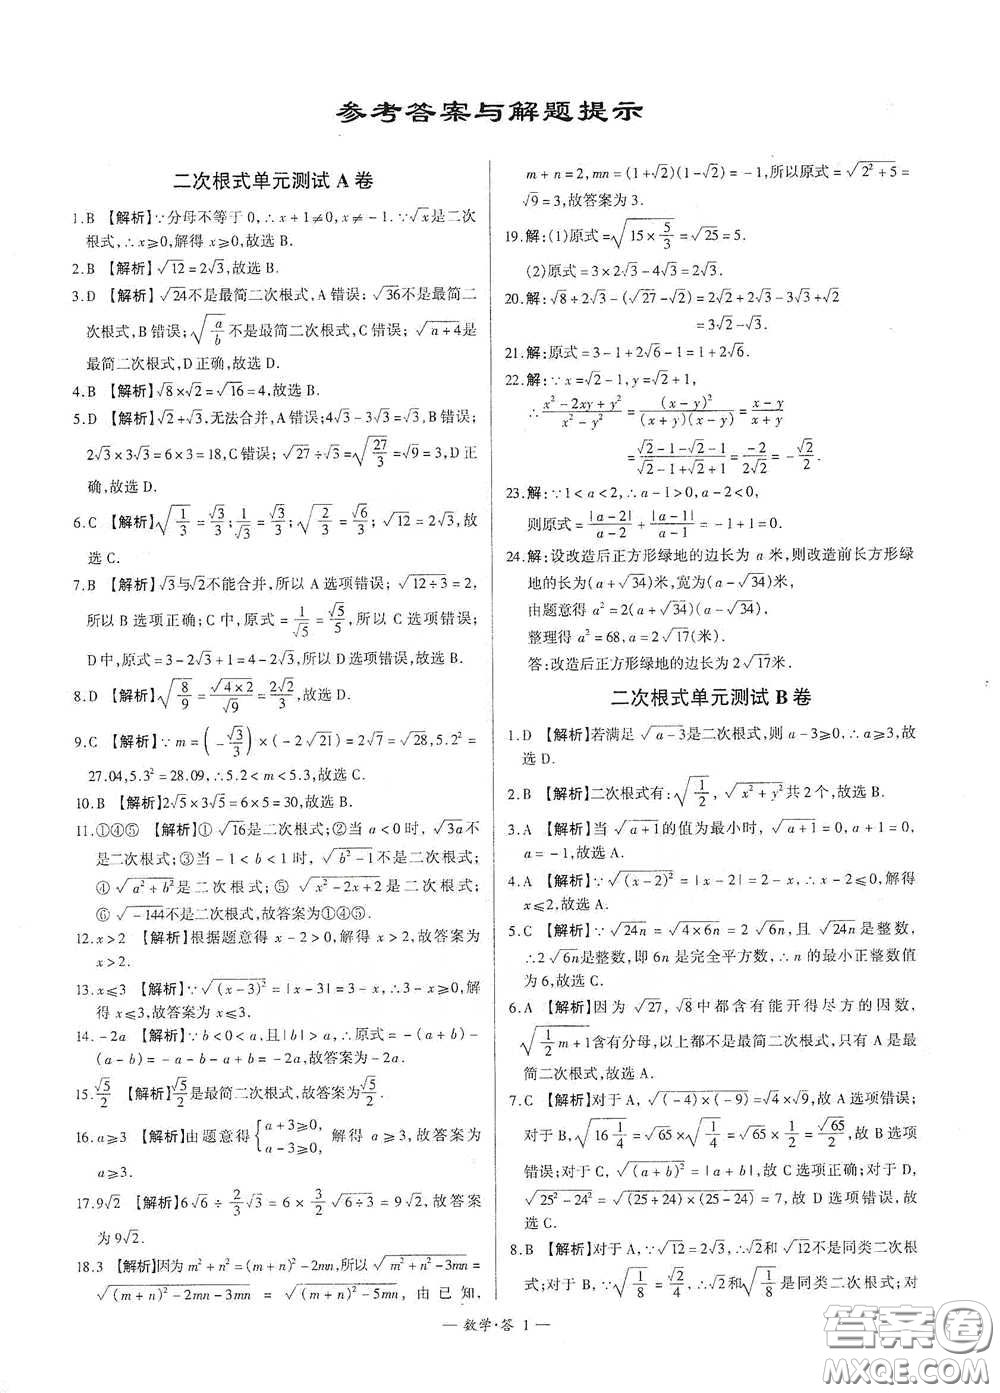 参考答案与解题提示
二次根式单元测试 A 卷
1.B 【解析】∵分母不等于 0,∴x+1≠0,x≠-1.∵√x是二次
根式,∴x⩾0,解得 x⩾0,故选 B.
2.B 【解析】√12=2√3,故选 B.
3.D 【解析】√24不是最简二次根式,A 错误;√36不是最简二
次根式,B 错误;√(a/b)不是最简二次根式,C 错误;√(a+4)是
最简二次根式,D 正确,故选 D.
4.B 【解析】√8×√2=√16=4,故选 B.
5.D 【解析】√2+√3,无法合并,A 错误;4√3-3√3=√3,B 错误;
2√3×3√3=6×3=18,C 错误;√27÷√3=√(27/3)=√9=3,D 正
确,故选 D.
6.C 【解析】√(1/3)=√3/3;1/√3=√3/3;√(2/3)=√6/3;√12=2√3,故
选 C.
7.B 【解析】√3与√2不能合并,所以 A 选项错误;√(12÷3)=2,
所以 B 选项正确;C 中,原式=1/√5=√5/5,所以 C 选项错误;
D 中,原式=3-2√3+1=4-2√3,所以 D 选项错误,故选 B.
8.D 【解析】√(8/9)=√(4×2)/√9=2√2/3,故选 D.
9.C 【解析】∵m=(-√3/3)×(-2√21)=2√7=√28,5.2²=
27.04,5.3²=28.09,∴5.2<m<5.3,故选 C.
10.B 【解析】2√5×3√5=6×5=30,故选 B.
11.①④⑤ 【解析】①√16是二次根式;②当 a<0时,√3a不
是二次根式;③当-1<b<1时,√(b²-1)不是二次根式;
④√(a²+b²)是二次根式;⑤√(x²-2x+2)是二次根式;
⑥√-144不是二次根式,故答案为①④⑤.
12.x>2 【解析】根据题意得 x-2>0,解得 x>2,故答案为
x>2.
13.x⩽3 【解析】∵√(x-3)²=|x-3|=3-x,∴3-x⩾0,解
得 x⩽3,故答案为 x⩽3.
14.-2a 【解析】∵b<0<a,且|b|>a,∴原式=-(a+b)-
(a-b)=-a-b-a+b=-2a,故答案为-2a.
15.√5/2 【解析】√5/2是最简二次根式,故答案为√5/2.
16.a⩾3 【解析】由题意得{a+3⩾0, a-3⩾0, 解得 a⩾3,故答案为
a⩾3.
17.9√2 【解析】6√6÷2/3√3=6×3/2√(6÷3)=9√2,故答案
为 9√2.
18.3 【解析】因为 m²+n²=(m+n)²-2mn,所以√(m²+n²-3mn)
=√((m+n)²-2mn-3mn)=√((m+n)²-5mn),由已知,
m+n=2,mn=(1+√2)(1-√2)=-1,所以原式=√(2²+5)=
√9=3,故答案为 3.
19.解:(1)原式=√(15×5/3)=√25=5.
(2)原式=3×2√3-4√3=2√3.
20.解:√8+2√3-(√27-√2)=2√2+2√3-3√3+√2
=3√2-√3.
21.解:原式=3-1+2√6-1=1+2√6.
22.解:∵x=√2-1,y=√2+1,
∴(x²-2xy+y²)/(x²-y²)=(x-y)²/((x+y)(x-y))=(x-y)/(x+y)
=(√2-1-√2-1)/(√2-1+√2+1)=-2/(2√2)=-√2/2.
23.解:∵1<a<2,∴a-1>0,a-2<0,
则原式=|a-2|/(a-2)+|a-1|/(a-1)=-1+1=0.
24.解:设改造后正方形绿地的边长为 a 米,则改造前长方形绿
地的长为(a+√34)米,宽为(a-√34)米,
由题意得 a²=2(a+√34)(a-√34),
整理得 a²=68,a=2√17(米).
答:改造后正方形绿地的边长为 2√17米.
二次根式单元测试 B 卷
1.D 【解析】若满足√(a-3)是二次根式,则 a-3⩾0,∴a⩾3,故
选 D.
2.B 【解析】二次根式有:√(1/2),√(x²+y²)共 2 个,故选 B.
3.A 【解析】当√(a+1)的值为最小时,√(a+1)=0,a+1=0,
a=-1,故选 A.
4.A 【解析】∵√(x-2)²=|x-2|=2-x,∴x-2⩽0,解得
x⩽2,故选 A.
5.C 【解析】∵√24n=√(4×6n)=2√6n,且√24n是整数,
∴2√6n是整数,即 6n 是完全平方数,∴n 的最小正整数值
为 6,故选 C.
6.A 【解析】因为√27,√8中都含有能开得尽方的因数,
√(1/2 m+1)含有分母,以上都不是最简二次根式,只有 A 是最
简二次根式,故选 A.
7.C 【解析】对于 A,√((-4)×(-9))=√4×√9,故 A 选项错误;
对于 B,√(16 1/4)=√65×√(1/4)=√65×1/2=√65/2,故 B 选项
错误;对于 C,√(a+b)²=|a+b|,故 C 选项正确;对于 D,
√(25²-24²)=√((25+24)×(25-24))=7,故 D 选项错误,故
选 C.
8.B 【解析】对于 A,∵√12=2√3,∴√2和√12不是同类二次根
式;对于 B,∵√(1/8)=√2/4,∴√2和√(1/8)是同类二次根式;对
— 数学·答 1 —
答案卷
MXQE.COM